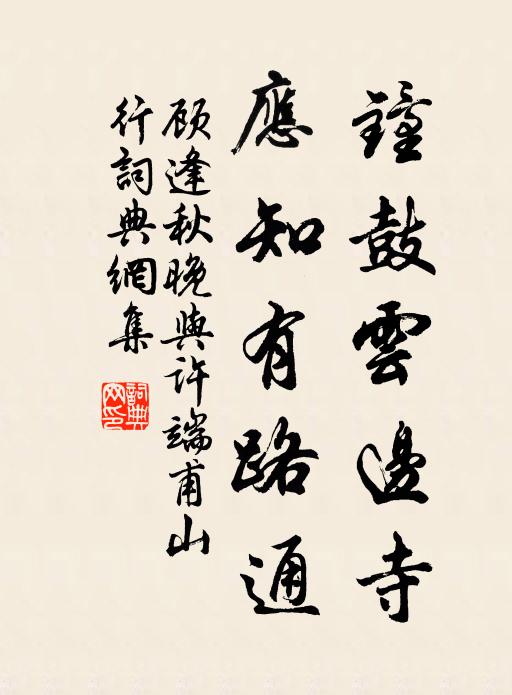 鐘鼓雲邊寺
應知有路通
顾逢秋晚與許端甫山
行詞典網集
詞典
网印